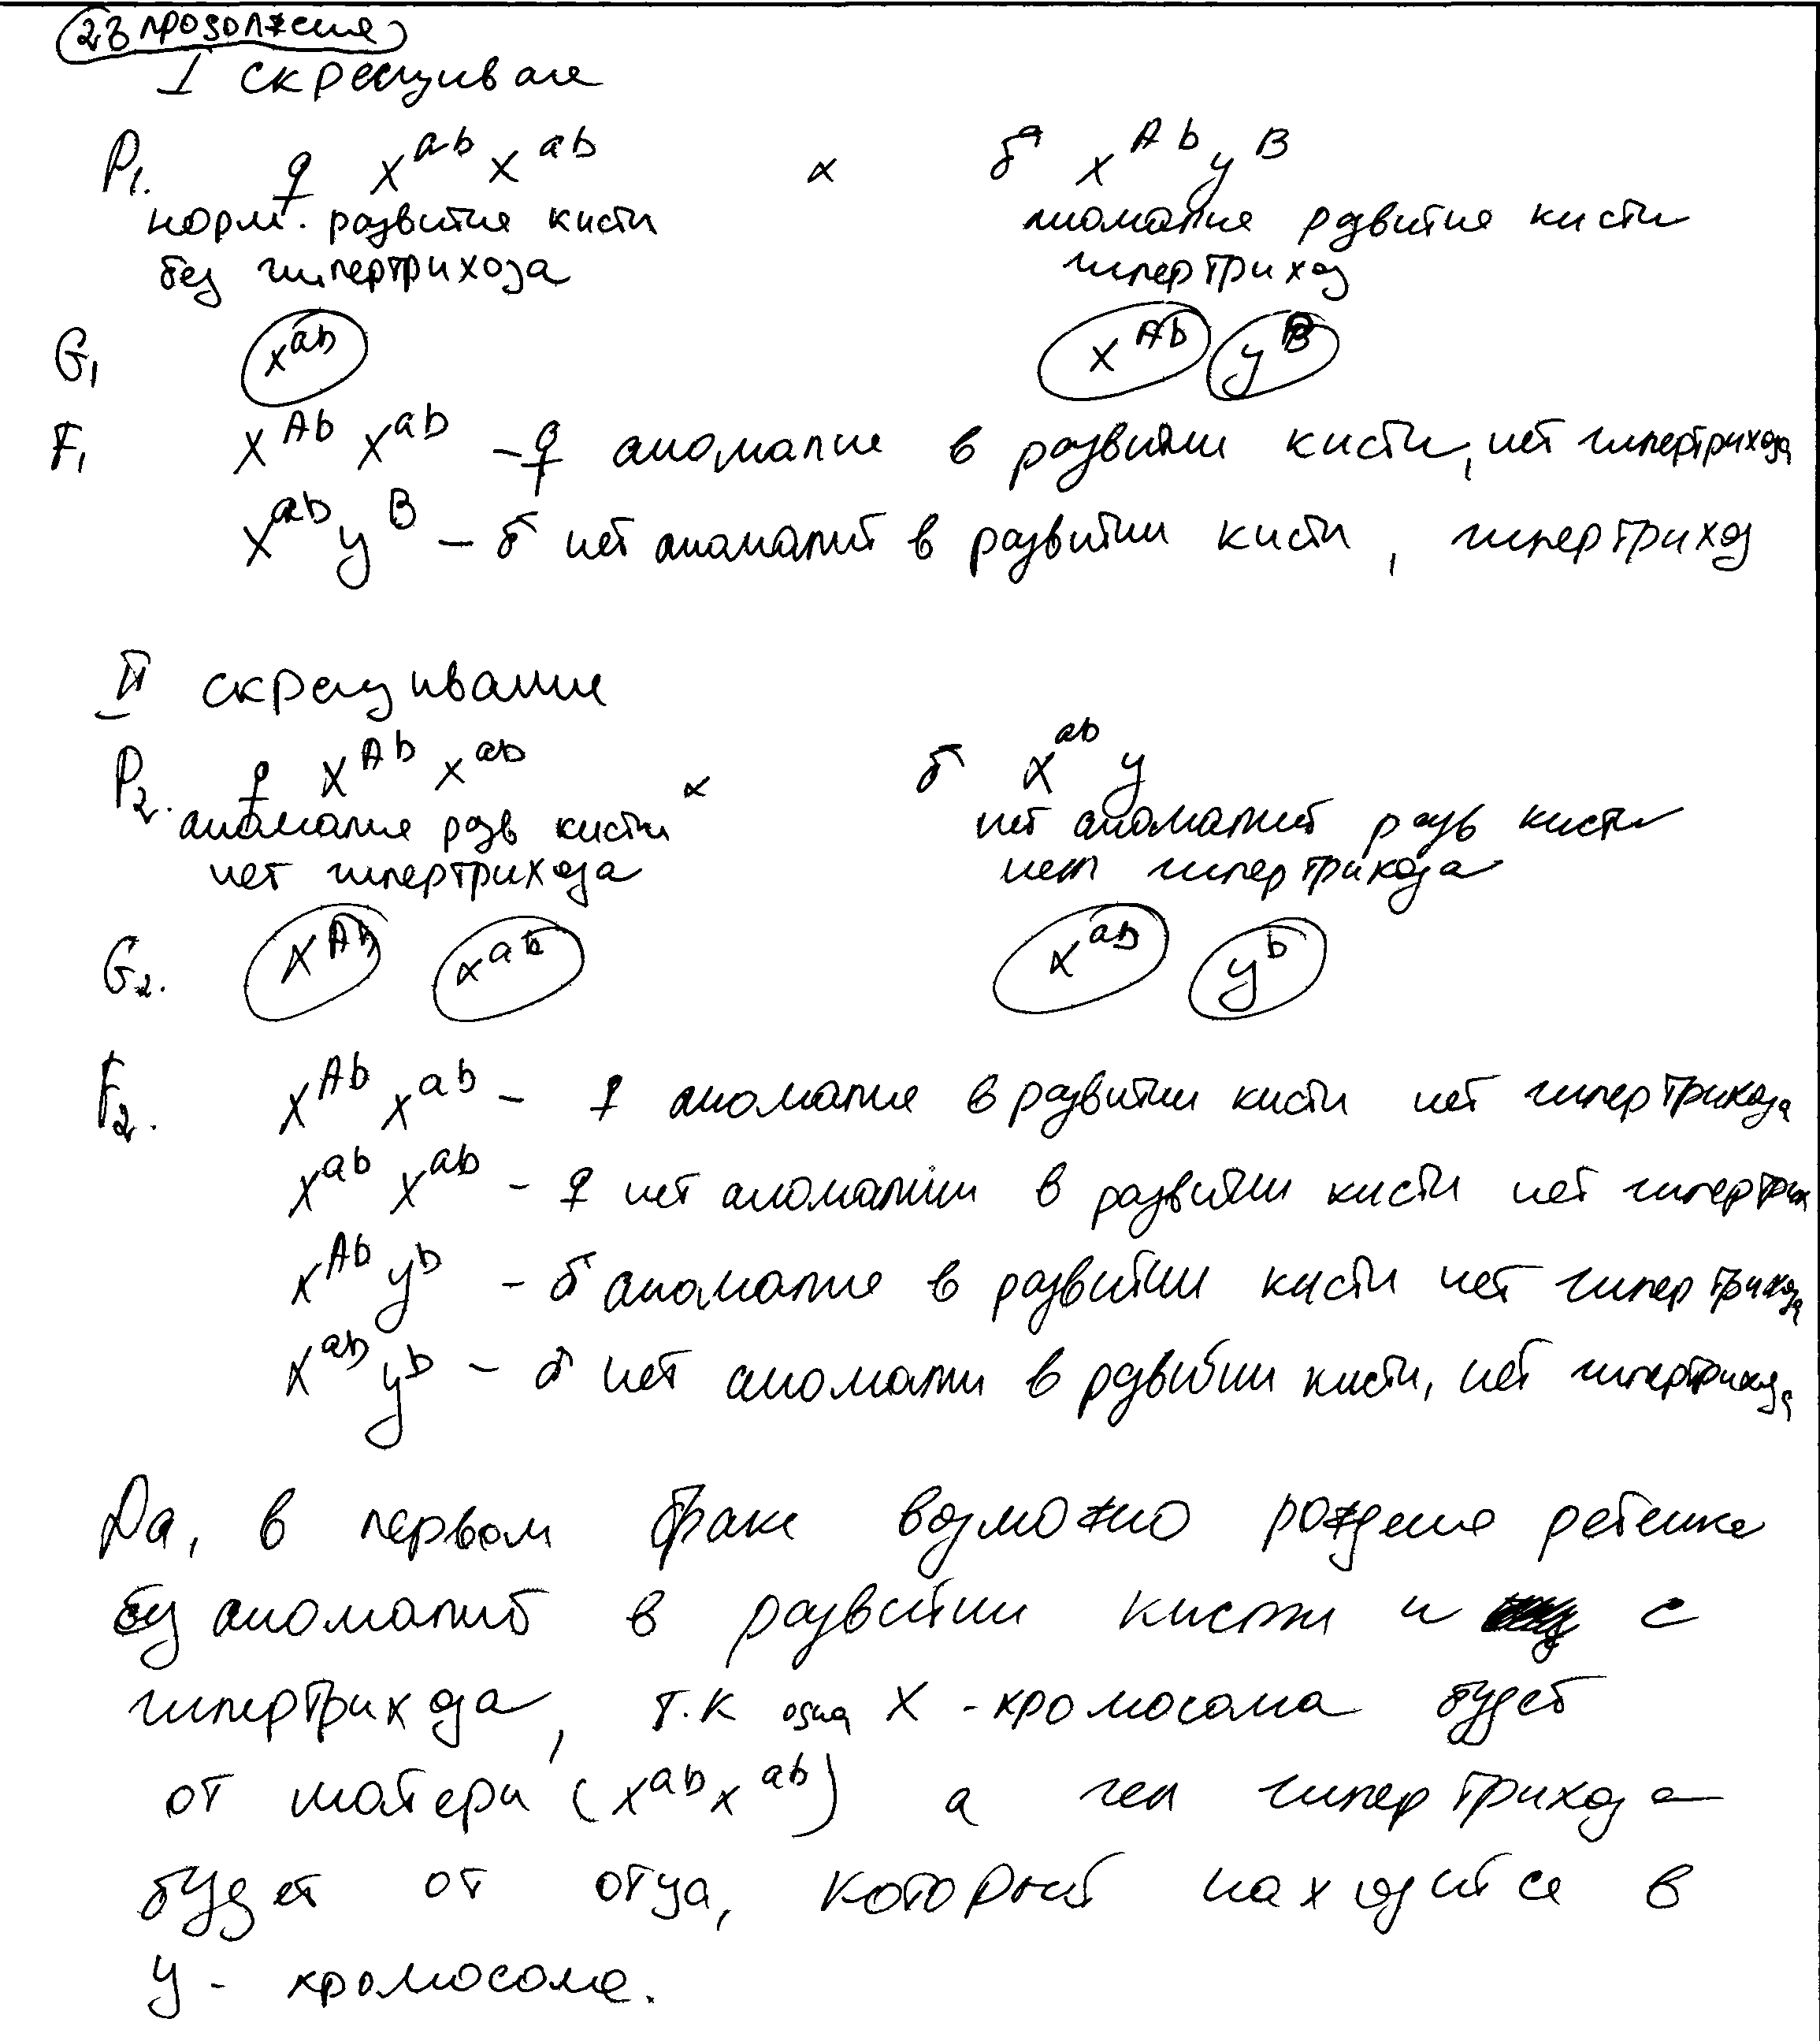 28 продолжение
I скрещивание
P1. ♀ X^ab X^ab × ♂ X^Ab y^B
норм. развитие кисти аномалие развитие кисти
без гипертрихоза гипертрихоз
G1 X^ab X^Ab y^B
F1 X^Ab X^ab – ♀ аномалие в развитии кисти, нет гипертрихоза
X^ab y^B – ♂ нет аномалий в развитии кисти, гипертрихоз
II скрещивание
P2. ♀ X^Ab X^ab × ♂ X^ab y
аномалие разв кисти нет аномалий разв кисти
нет гипертрихоза нет гипертрихоза
G2. X^Ab X^ab X^ab y^b
F2. X^Ab X^ab – ♀ аномалие в развитии кисти нет гипертрихоза
X^ab X^ab – ♀ нет аномалии в развитии кисти нет гипертрих
X^Ab y^b – ♂ аномалие в развитии кисти нет гипертрихоза
X^ab y^b – ♂ нет аномалии в развитии кисти, нет гипертрихоза
Да, в первом браке возможно рождение ребенка
без аномалий в развитии кисти и с
гипертрихоза, т.к одна X - хромосома будет
от матери (X^ab X^ab) а ген гипертрихоза
будет от отца, который находится в
y - хромосоме.